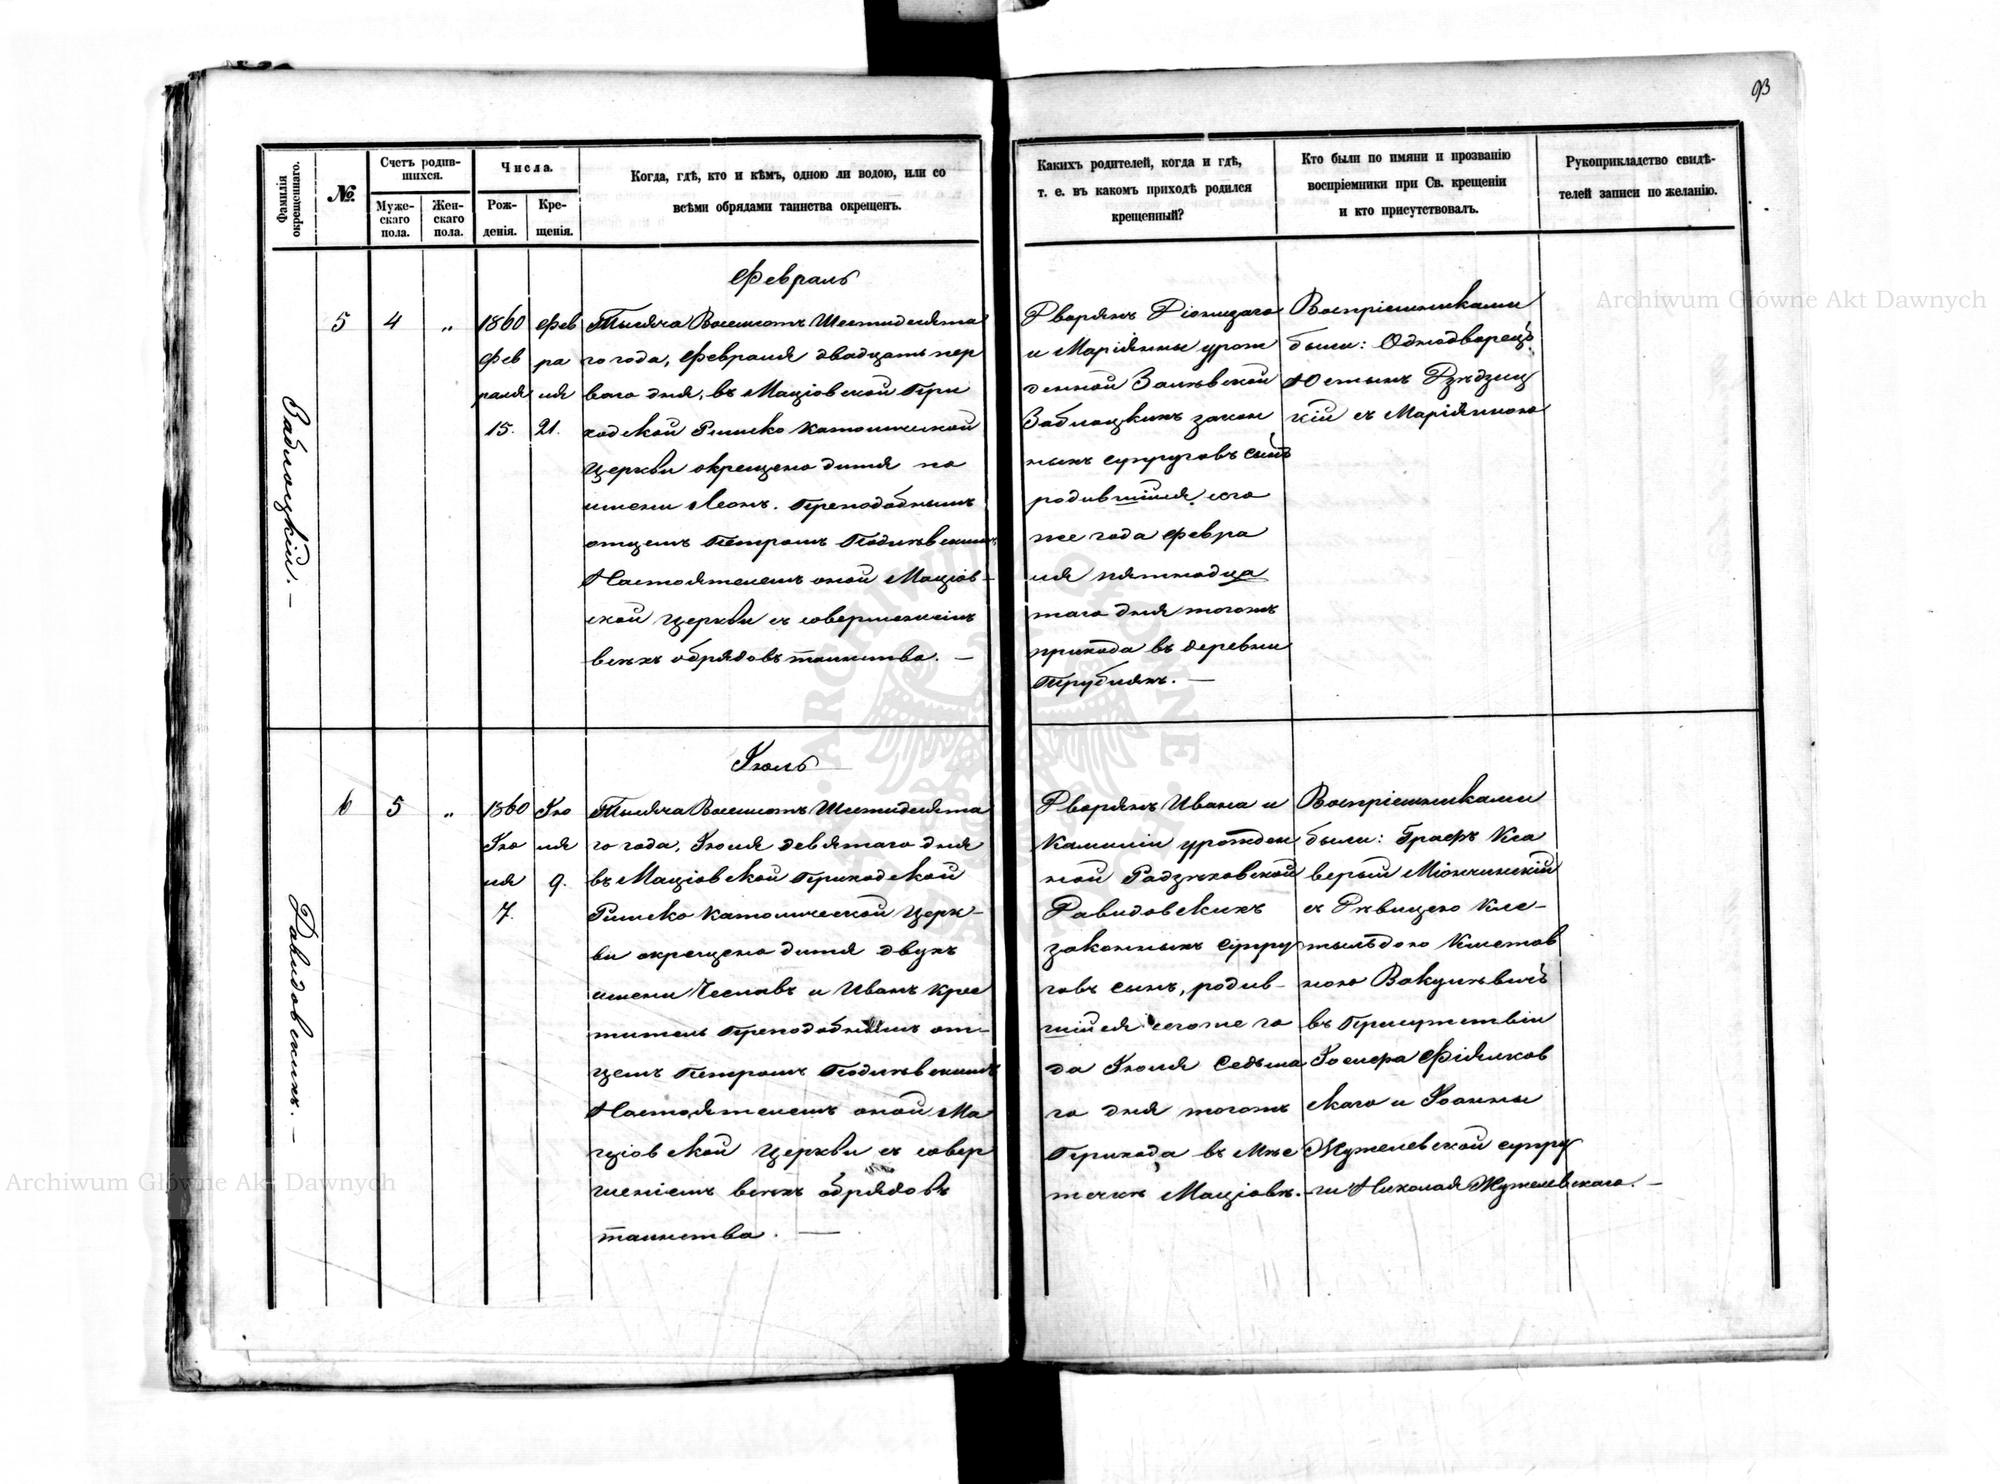 93
Фамилія окрещеннаго.
№.
Счетъ родив-
шихся.
Муже-
скаго
пола.
Жен-
скаго
пола.
Числа.
Рож-
денія.
Кре-
щенія.
Когда, гдѣ, кто и кѣмъ, одною ли водою, или со
всѣми обрядами таинства окрещенъ.
Какихъ родителей, когда и гдѣ,
т. е. въ какомъ приходѣ родился
крещенный?
Кто были по имяни и прозванію
воспріемники при Св. крещеніи
и кто присутствовалъ.
Рукоприкладство свидѣ-
телей записи по желанію.
Заблоцкій. —
5
4
"
1860
Фев
раля
15.
Фев
ра
ля
21.
Февраль
Тысяча Восемсотъ Шестидесята
го года, Февраля двадцать пер
ваго дня, въ Маціовской При
ходской Римско Католической
Церкви окрещено дитя по
имени Леонъ. Преподобнымъ
отцемъ Петромъ Подлѣвскимъ
Настоятелемъ оной Маціов-
ской Церкви съ совершеніемъ
всѣхъ обрядовъ таинства. —
Дворянъ Діонизаго
и Маріянны урож
денной Залѣвской
Заблоцкихъ закон
ныхъ супруговъ сынъ
родившійся сего
же года Февра
ля пятнадца
таго дня тогожъ
прихода въ деревни
Воспріемниками
были: Однодворецъ
Юстынъ
кій съ Маріянною
Archiwum Główne Akt Dawnych
Давидовскихъ. —
6
5
"
1860
Ію
ля
7.
Ію
ля
9.
Іюль
Тысяча Восемсотъ Шестидесята
го года, Іюля девятаго дня
въ Маціовской Приходской
Римско Католической Церк-
ви окрещено дитя двухъ
имени Чеславъ и Иванъ Крес
титель Преподобнымъ от-
цемъ Петромъ Подлѣвскимъ
Настоятелемъ оной Ма
ціовской Церкви съ совер
шеніемъ всѣхъ обрядовъ
таинства. —
Дворянъ Ивана и
Камиліи урожден
ной Радзѣховской
Давидовскихъ
законныхъ супру
говъ сынъ, родив-
шійся сегоже го
да Іюля Седьма
го дня тогожъ
Прихода въ Мѣс
течкѣ Маціовѣ. —
Воспріемниками
были: Графъ Кса
верый Міончинскій
съ Дѣвицею Кле-
тыльдою
въ Присутствіи
Іосифа Фіялков
скаго и Іоанны
Жужелевской супру
ги Николая Жужелевскаго. —
Archiwum Główne Akt Dawnych